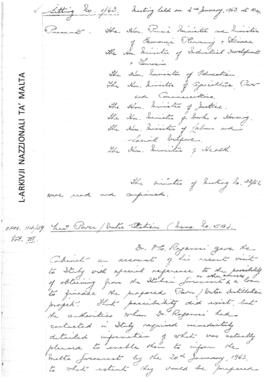 Sitting No. 1/63. Meeting held on 2nd January, 1963 at
Present: The Hon. Prime Minister and Minister
of Economic Planning & Finance
The Hon. Minister of Industrial Development
& Tourism
The Hon. Minister of Education
The Hon. Minister of Agriculture, Power
and Communications
The Hon. Minister of Justice
The Hon. Minister of Works & Housing
The Hon. Minister of Labour and
Social Welfare
The Hon. Minister of Health
The minutes of Meeting No.
were read and confirmed.
Power/Water Station (Memo No.
Dr. gave the
Cabinet an account of his recent visit
to Italy with special reference to the possibility
of obtaining from the Italian Government a loan
to finance the proposed Power/Water Distillation
project. That possibility did exist, but
the authorities whom Dr.
contacted in Italy required immediately
detailed information of which was actually
pleased to enable them to inform the
Malta Government by the 20th January, 1963,
to what extent they would be prepared
L-ARKIVJI NAZZJONALI TA' MALTA